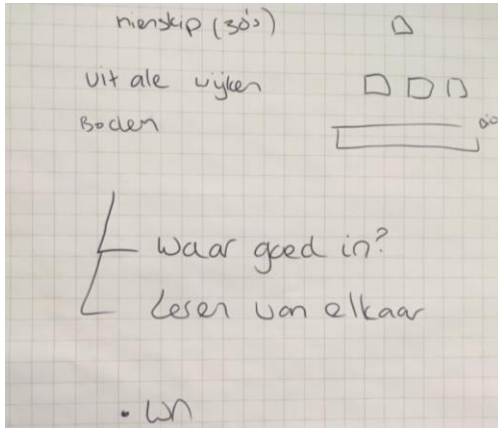 mienskip (30's)
vitale wijken
Boden
waar goed in?
Leren van elkaar
• wn